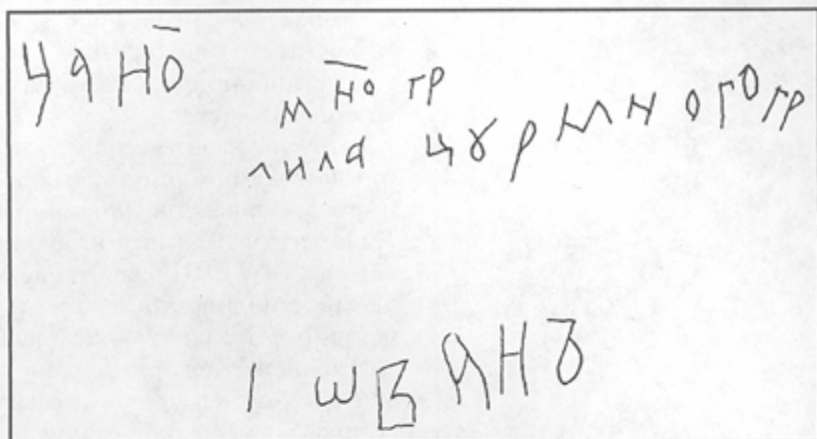 ЧАНО̄
М Н̄О ГР
ЛИЛА ЦꙋР М Н ОГОГР
І ѠВАНЪ